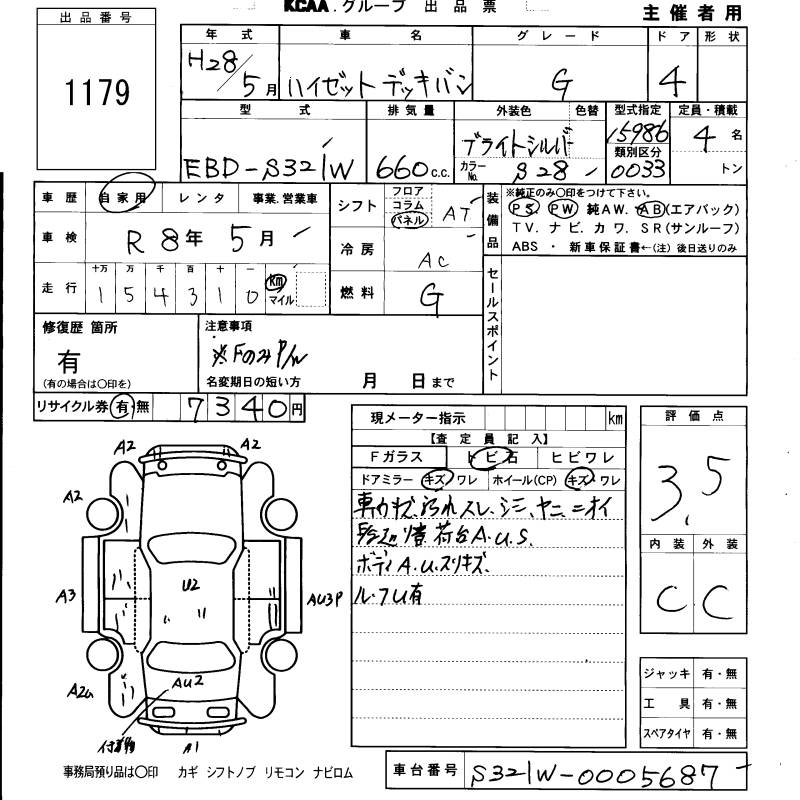 KCAA.グループ 出品票
主催者用
出品番号
1179
年式 車名 グレード ドア 形状
H28/5月 ハイゼット デッキバン G 4
型式 排気量 外装色 色替 型式指定 定員・積載
EBD-S321W 660c.c. ブライトシルバー 15986 4名
カラーNo. S28 類別区分 0033 トン
車歴 自家用 レンタ 事業.営業車
車検 R8年5月
走行 十万 万 千 百 十 一
1 5 4 3 1 0 km マイル
シフト フロア コラム パネル AT
冷房 AC
燃料 G
装備品
※純正のみ○印をつけて下さい。
PS. PW 純AW. AB(エアバック)
TV. ナビ. カワ. SR(サンルーフ)
ABS ・ 新車保証書←(注) 後日送りのみ
セールスポイント
修復歴 箇所
有
(有の場合は○印を)
注意事項
※FのみP/W
名変期日の短い方 月 日まで
リサイクル券 有・無 7340円
現メーター指示 km
【査定員記入】
Fガラス トビ石 ヒビワレ
ドアミラー キズ・ワレ ホイール(CP) キズ・ワレ
車内キズ.汚れ.スレ.シミ.ヤニ.ニオイ
荷台A.U.S.
ボディA.U.スリキズ.
ルーフU有
評価点
3.5
内装 外装
C C
ジャッキ 有・無
工具 有・無
スペアタイヤ 有・無
A2 A2
A2 A2
U2
A3 AU3P
AU2
A2u
付着物 A1
事務局預り品は○印 カギ シフトノブ リモコン ナビロム
車台番号 S321W-0005687